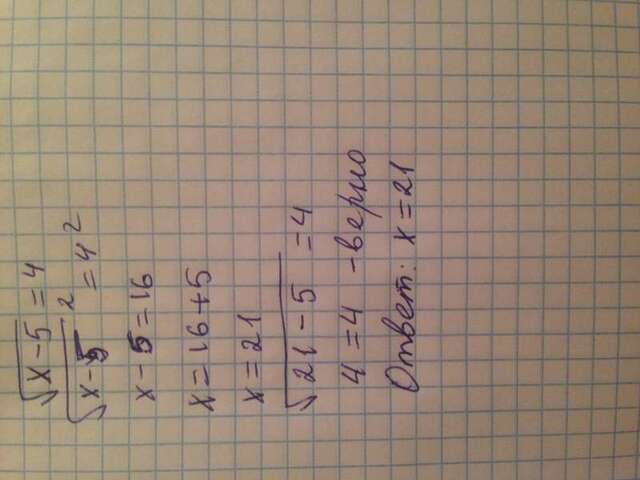 √x-5 = 4
√x-5² = 4²
x-5=16
x=16+5
x=21
√21-5 =4
4=4 -верно
Ответ: x=21